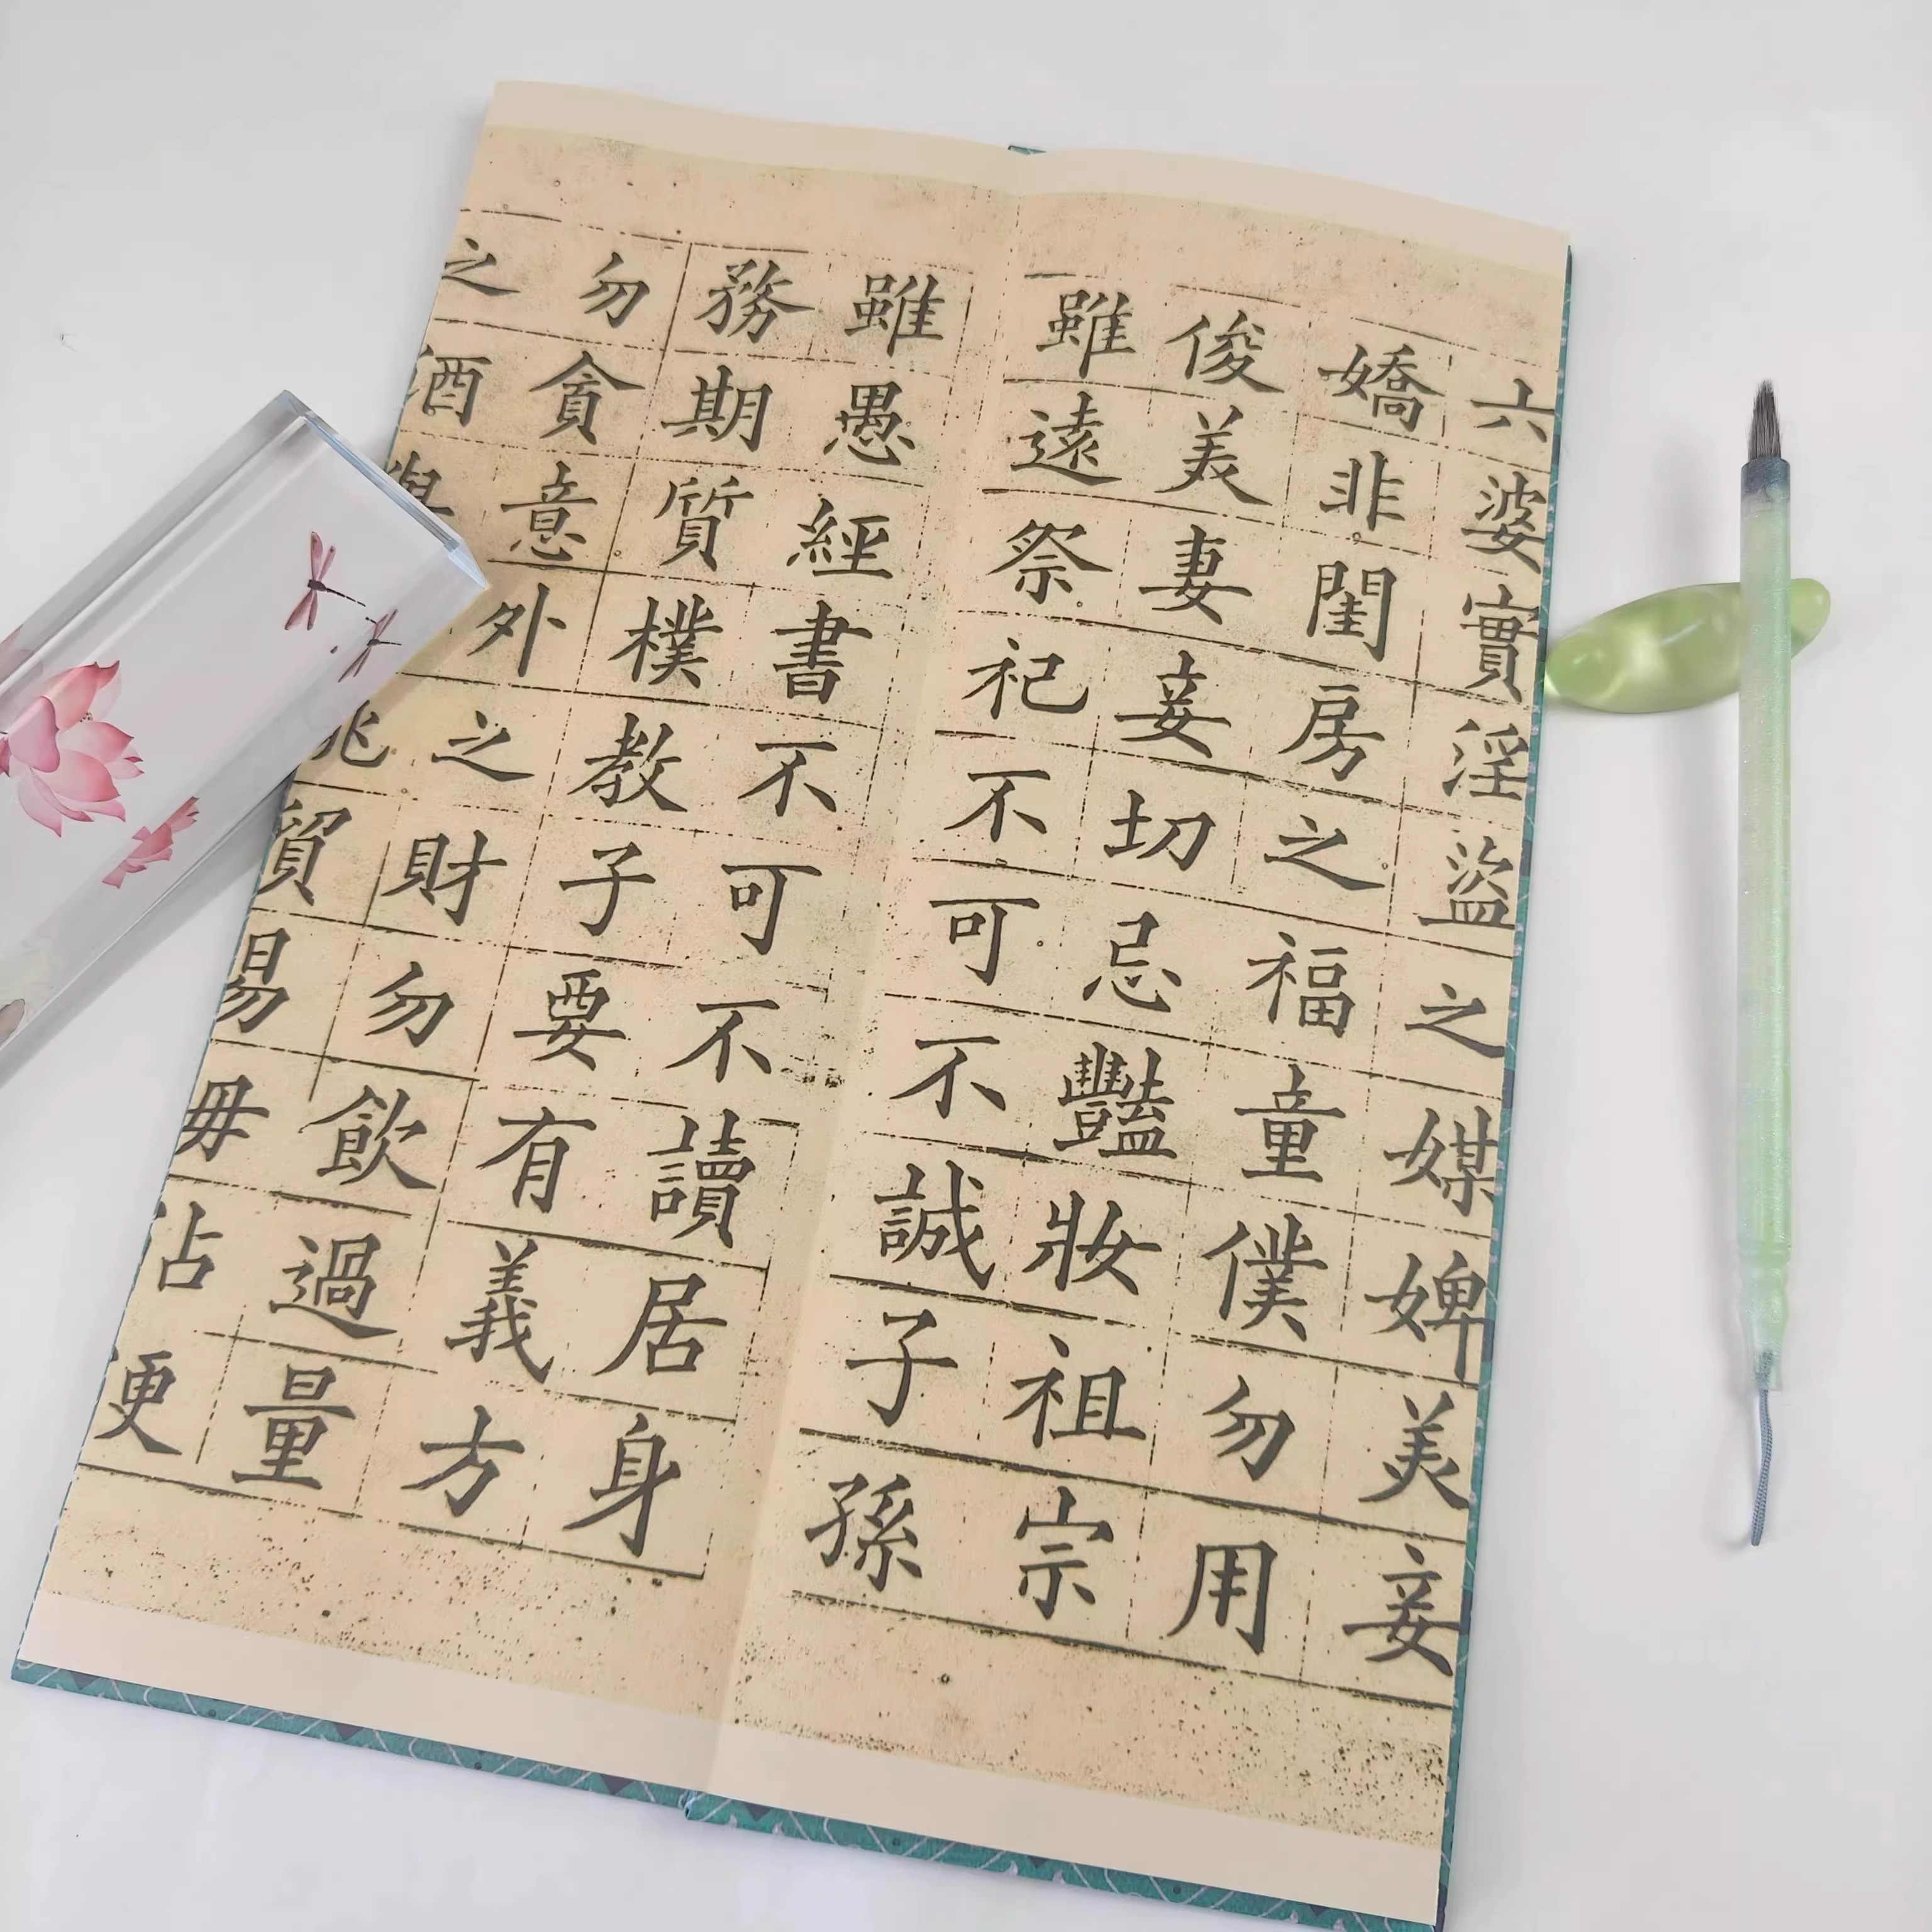 六婆實淫盜之媒婢美妾
嬌非閨房之福童僕勿用
俊美妻妾切忌豔妝祖宗
雖遠祭祀不可不誠子孫
雖愚經書不可不讀居身
務期質樸教子要有義方
勿貪意外之財勿飲過量
之酒與挑貿易毋沾便